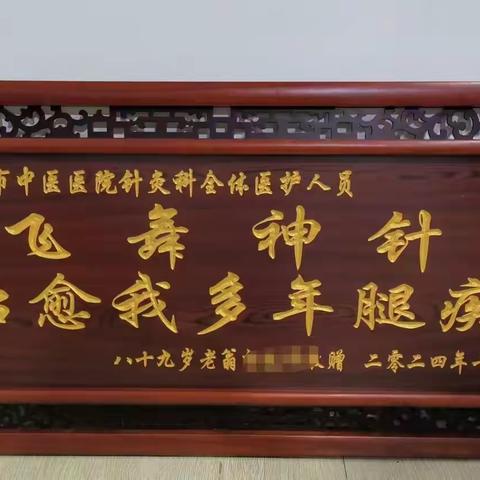 市中医医院针灸科全体医护人员
飞舞神针
愈我多年腿疾
八十九岁老翁 赠 二零二四年